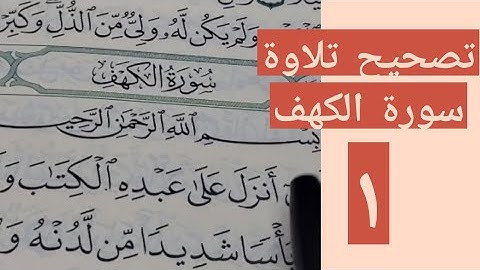 وَلَمْ يَكُن لَّهُۥ وَلِىٌّ مِّنَ ٱلذُّلِّ وَكَبِّرْ
سُورَةُ الكَهْفِ
بِسْمِ ٱللَّهِ ٱلرَّحْمَٰنِ ٱلرَّحِيمِ
أَنزَلَ عَلَىٰ عَبْدِهِ ٱلْكِتَٰبَ وَ
بَأْسًا شَدِيدًا مِّن لَّدُنْهُ وَ
تصحيح تلاوة
سورة الكهف
١